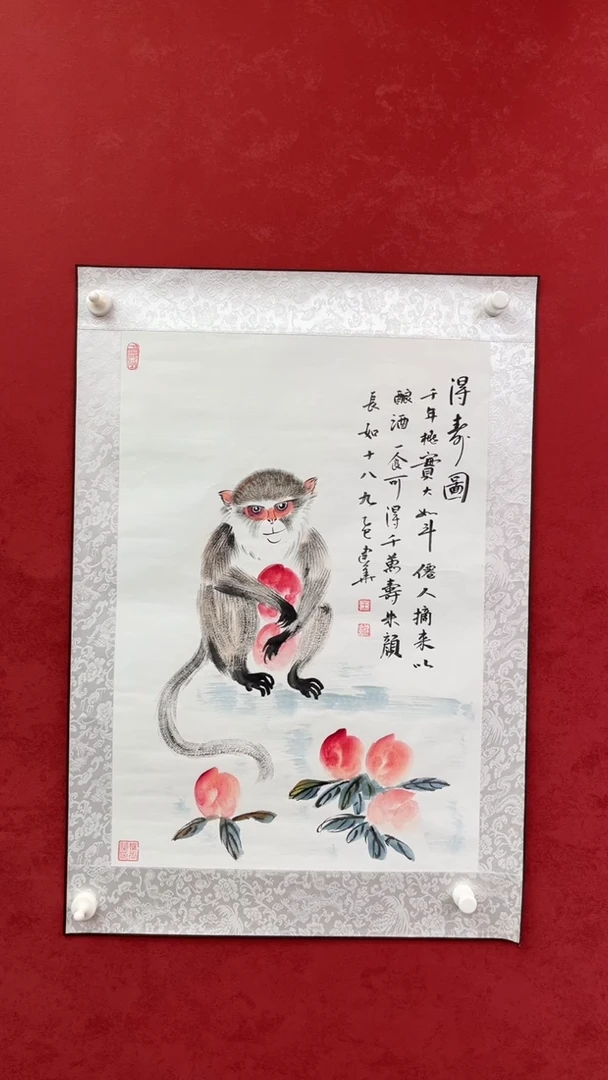 得壽圖
千年桃實大如斗僊人摘来以
釀酒一食可得千萬壽朱顔
長如十八九 建華